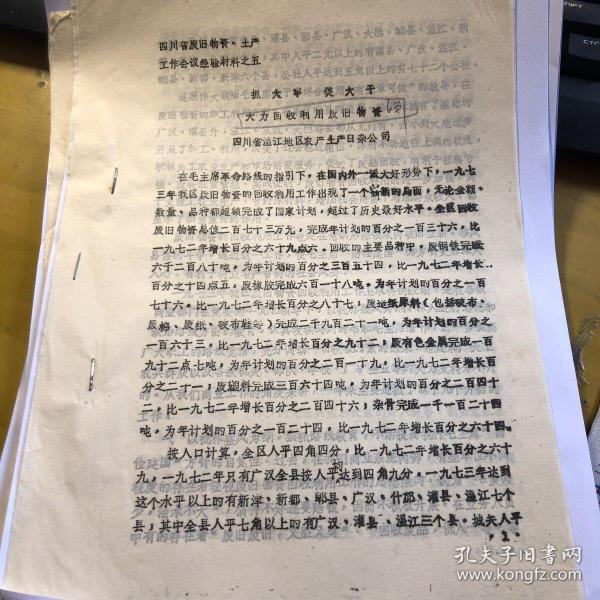 四川省废旧物资、生产
工作会议经验材料之五
抓大事 促大干
大力回收利用废旧物资
四川省温江地区农产生产日杂公司
在毛主席革命路线的指引下，在国内外一派大好形势下，一九七
三年我区废旧物资的回收利用工作出现了一个崭新的局面，无论金额、
数量、品种都超额完成了国家计划，超过了历史最好水平。全区回收
废旧物资总值二百七十三万元，完成年计划的百分之一百三十六，比
一九七二年增长百分之六十九点六。回收的主要品种中，废钢铁完成
六千二百八十吨，为年计划的百分之三百五十四，比一九七二年增长
百分之十四点五，废橡胶完成六百一十八吨。为年计划的百分之一百
七十六。比一九七二年增长百分之八十七；废造纸原料（包括破布、
废棉、废纸、破布鞋等）完成二千九百二十一吨，为年计划的百分之
一百六十三，比一九七二年增长百分之九十二；废有色金属完成一百
九十二点七吨，为年计划的百分之二百一十九，比一九七二年增长百
分之二十一；废塑料完成三百六十四吨，为年计划的百分之二百四十
二，比一九七二年增长百分之二百四十六；杂骨完成一千一百二十四
吨，为年计划的百分之一百二十四，比一九七二年增长百分之六十四。
按人口计算，全区人平四角四分，比一九七二年增长百分之六十
九，一九七二年只有广汉全县按人平均达到四角九分，一九七三年达到
这个水平以上的有新津、新都、郫县、广汉、什邡、灌县、温江七个
县；其中全县人平七角以上的有广汉、灌县、温江三个县。城关人平
·1·
孔夫子旧书网
www.kongfz.com